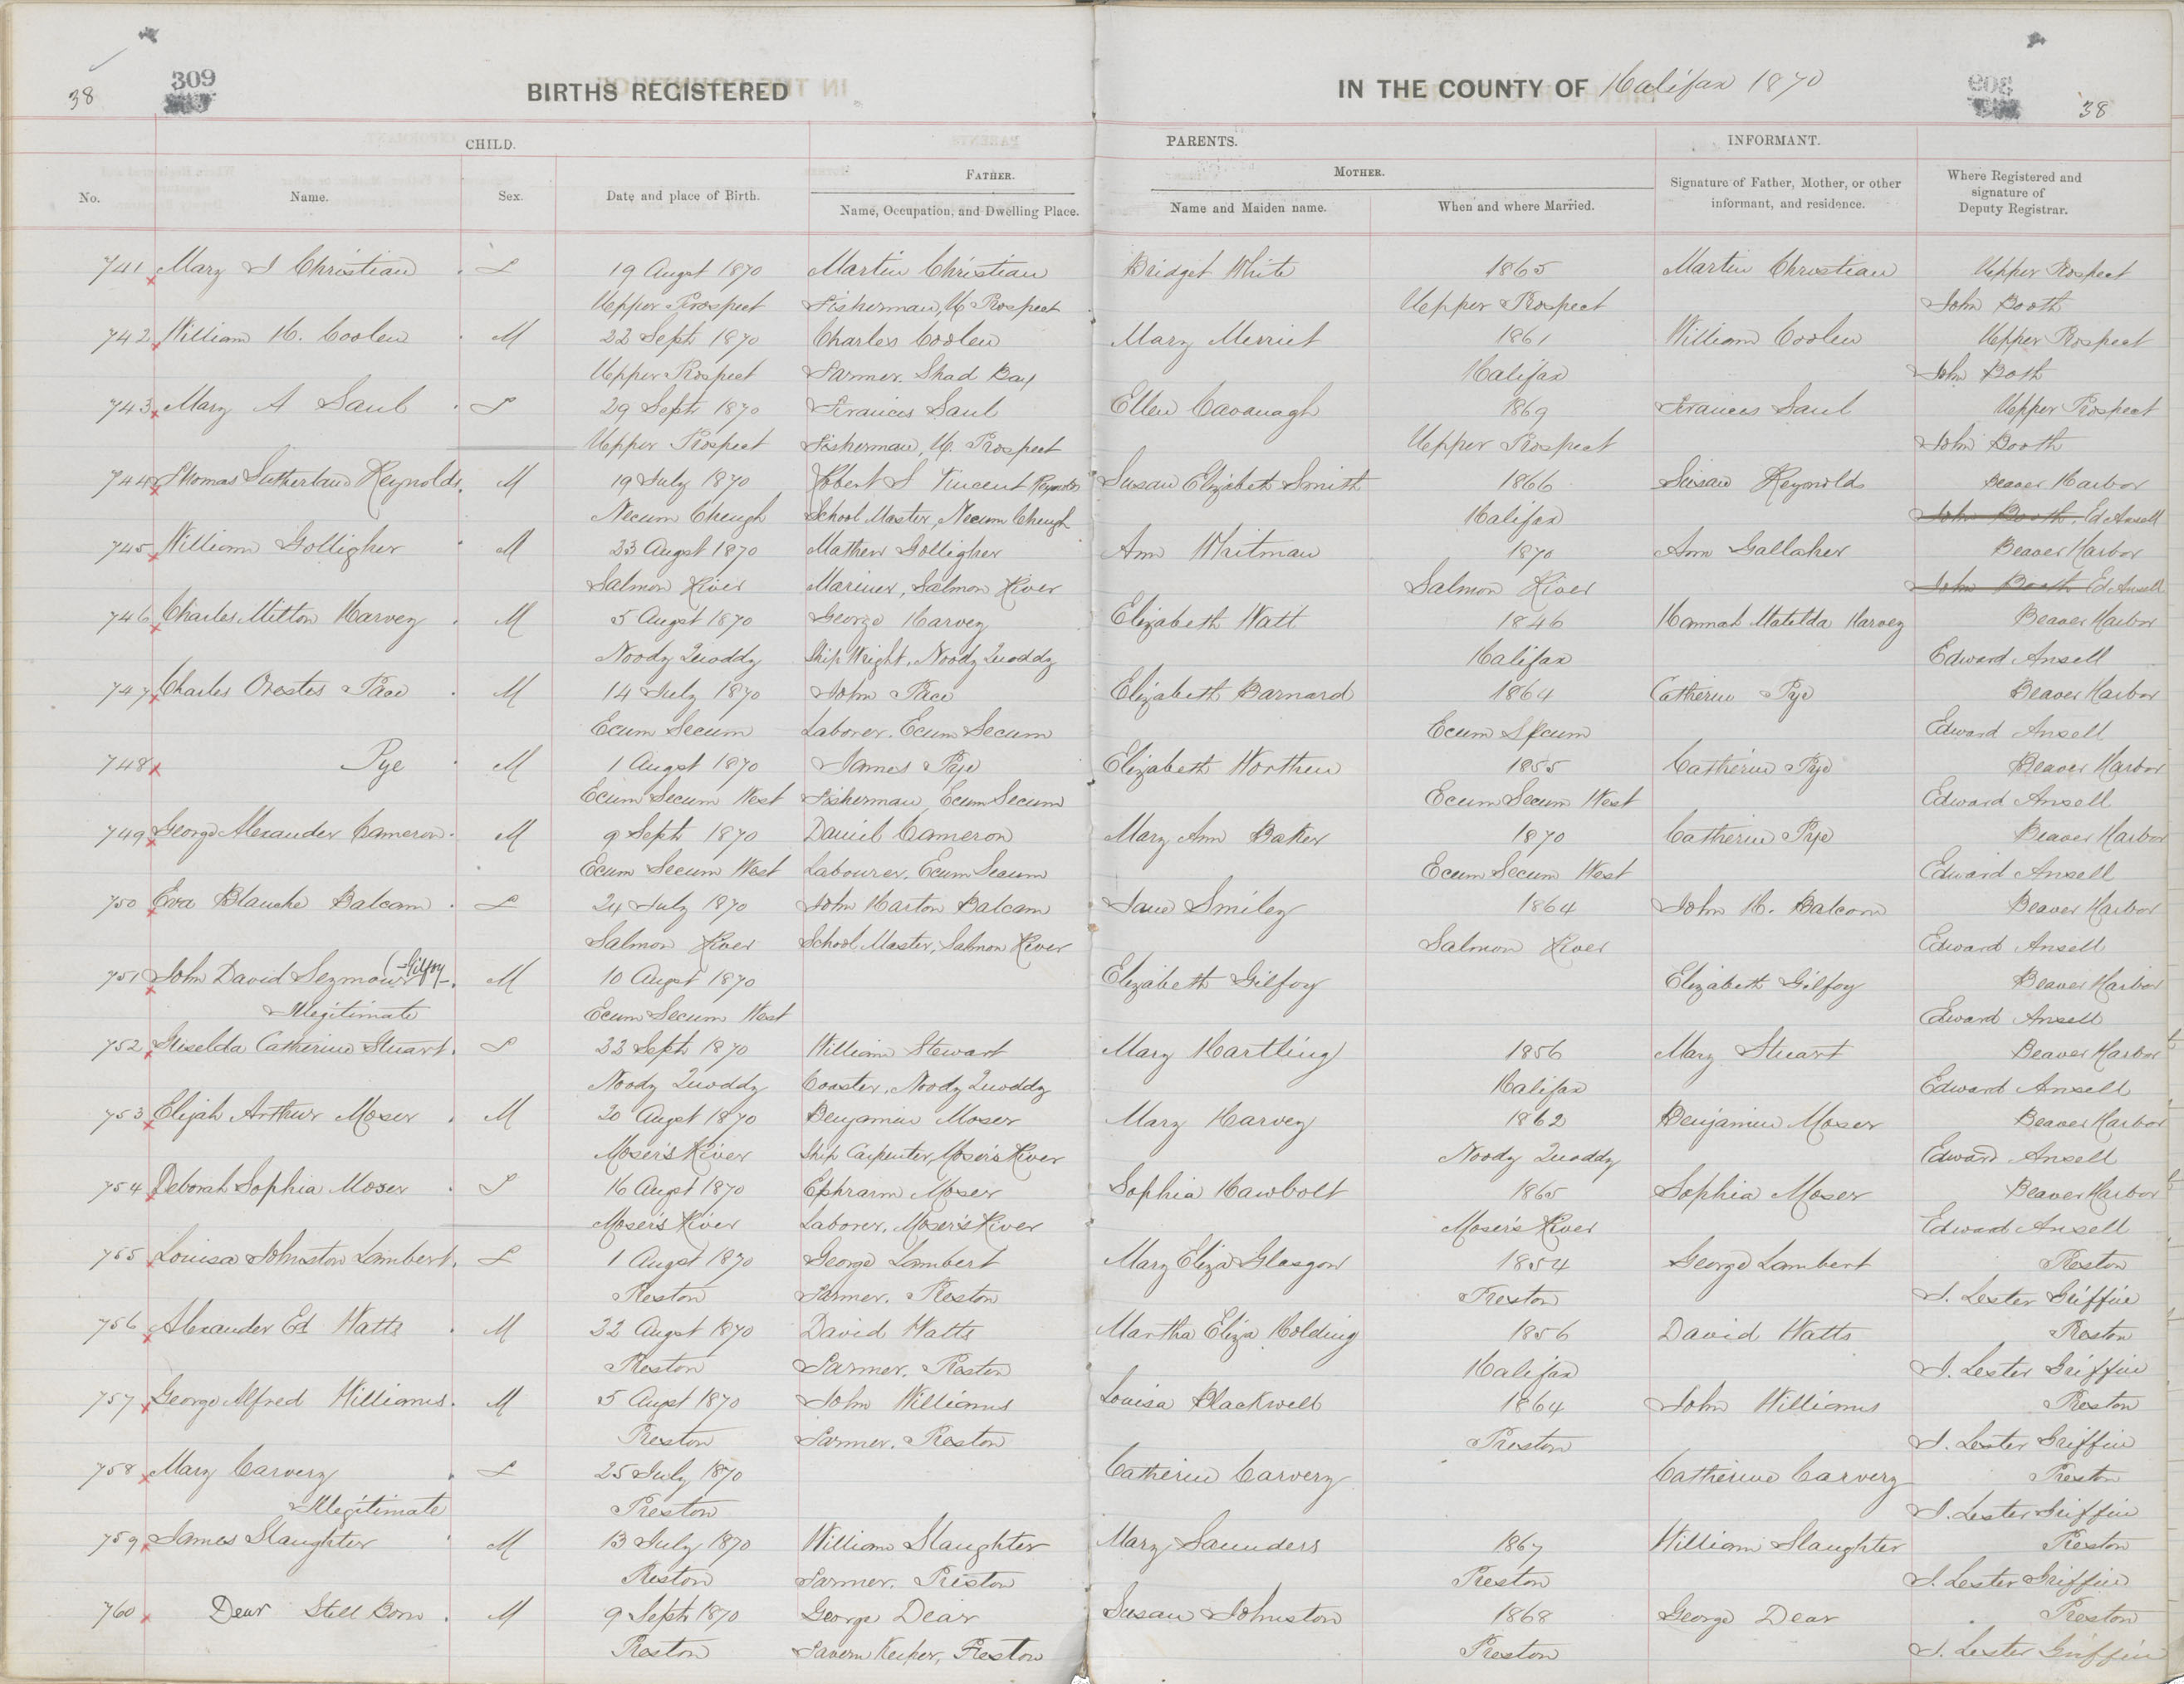 38 309 BIRTHS REGISTERED IN THE COUNTY OF Halifax 1870 309 38
CHILD. PARENTS. INFORMANT.
No. Name. Sex. Date and place of Birth. FATHER. Name, Occupation, and Dwelling Place. MOTHER. Name and Maiden name. When and where Married. Signature of Father, Mother, or other informant, and residence. Where Registered and signature of Deputy Registrar.
741 Mary I Christian F 19 Augst 1870 Martin Christian Bridget White 1865 Martin Christian Upper Prospect
Upper Prospect Fisherman, U. Prospect Upper Prospect John Booth
742 William H. Coolen M 22 Sept 1870 Charles Coolen Mary Merriet 1861 William Coolen Upper Prospect
Upper Prospect Farmer. Shad Bay Halifax John Booth
743 Mary A Saul F 29 Sept 1870 Frances Saul Ellen Cavanagh 1869 Frances Saul Upper Prospect
Upper Prospect Fisherman, U. Prospect Upper Prospect John Booth
744 Thomas Sutherland Reynolds M 19 July 1870 Robert S Vincent Reynolds Susan Elizabeth Smith 1866 Susan Reynolds Beaver Harbor
Necum Cheugh School Master, Necum Cheugh Halifax John Booth. Ed Ansell
745 William Golligher M 23 Augst 1870 Mathew Golligher Ann Whitman 1870 Ann Gallaher Beaver Harbor
Salmon River Mariner, Salmon River Salmon River John Booth Ed Ansell
746 Charles Milton Harvey M 5 Augst 1870 George Harvey Elizabeth Watt 1846 Hannah Matilda Harvey Beaver Harbor
Noody Quoddy Ship Wright, Noody Quoddy Halifax Edward Ansell
747 Charles Orestes Pace M 14 July 1870 John Pace Elizabeth Barnard 1864 Catherine Pye Beaver Harbor
Ecum Secum Laborer. Ecum Secum Ecum Secum Edward Ansell
748 Pye M 1 Augst 1870 James Pye Elizabeth Northen 1855 Catherine Pye Beaver Harbor
Ecum Secum West Fisherman, Ecum Secum Ecum Secum West Edward Ansell
749 George Alexander Cameron M 9 Sept 1870 Daniel Cameron Mary Ann Baker 1870 Catherine Pye Beaver Harbor
Ecum Secum West Labourer. Ecum Secum Ecum Secum West Edward Ansell
750 Eva Blanche Balcam F 24 July 1870 John Harton Balcam Jane Smiley 1864 John H. Balcom Beaver Harbor
Salmon River School Master, Salmon River Salmon River Edward Ansell
751 John David Seymour (-Gilfoy- M 10 Augst 1870 Elizabeth Gilfoy Elizabeth Gilfoy Beaver Harbor
Illegitimate Ecum Secum West Edward Ansell
752 Griselda Catherine Stuart. F 22 Sept 1870 William Stewart Mary Hartling 1856 Mary Stuart Beaver Harbor
Noody Quoddy Coaster, Noody Quoddy Halifax Edward Ansell
753 Elijah Arthur Moser M 20 Augst 1870 Benjamin Moser Mary Harvey 1862 Benjamin Moser Beaver Harbor
Moser's River Ship Carpenter, Moser's River Noody Quoddy Edward Ansell
754 Deborah Sophia Moser F 16 Augst 1870 Ephraim Moser Sophia Hawbolt 1865 Sophia Moser Beaver Harbor
Moser's River Laborer, Moser's River Moser's River Edward Ansell
755 Louisa Johnston Lambert. F 1 Augst 1870 George Lambert Mary Eliza Glasgow 1854 George Lambert Preston
Preston Farmer. Preston Preston I. Lester Griffin
756 Alexander Ed Watts M 22 Augst 1870 David Watts Martha Eliza Holding 1856 David Watts Preston
Preston Farmer. Preston Halifax I. Lester Griffin
757 George Alfred Williams. M 5 Augst 1870 John Williams Louisa Blackwell 1864 John Williams Preston
Preston Farmer. Preston Preston I. Lester Griffin
758 Mary Carvery F 25 July 1870 Catherine Carvery Catherine Carvery Preston
Illegitimate Preston I. Lester Griffin
759 James Slaughter M 13 July 1870 William Slaughter Mary Saunders 1867 William Slaughter Preston
Preston Farmer. Preston Preston I. Lester Griffin
760 Dear Still Born. M 9 Sept 1870 George Dear Susan Johnston 1868 George Dear Preston
Preston Tavern Keeper, Preston Preston I. Lester Griffin